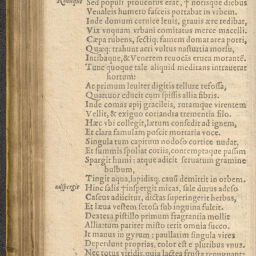 Rlinique
Sed populi prouectus erat, † nonisque diebus
Venaleis humero fasceis portabat in vrbem.
Inde domum ceruice leuis, grauis ære redibat,
Vix vnquam vrbani comitatus merce macelli.
Cæpa rubens, sectiq; famem domat area porri,
Quæq; trahunt acri voltus nasturtia morsu,
Intibaque, & Venerem reuocās eruca morantē.
Tunc quoque tale aliquid meditans intrauerat
hortum:
Ac primum leuiter digitis tellure refossa,
Quatuor educit cum spissis allia fibris.
Inde comas apij graciles, rutamque virentem
Vellit, & exiguo coriandra trementia filo.
Hæc vbi collegit, larem consedit ad ignem,
Et clara famulam poscit mortaria voce.
Singula tum capitum nodoso cortice nudat,
Et summis spoliat corijs, contemptaque passim
Spargit humi: atque adicit seruatum gramine
bulbum,
Tingit aqua, lapidisq; cauū demittit in orbem.
aspergit
Hinc salis †inspergit micas, sale durus adeso
Caseus adijcitur, dictas superingerit herbas,
Et læua vestem setosa sub inguina fulcit.
Dextera pistillo primum fragrantia mollit
Allia: tum pariter misto terit omnia succo.
It manus in gyrum: paullatim singula vires
Deperdunt proprias, color est e pluribus vnus.
Nec totus viridis, quia lactea frusta repugnant: